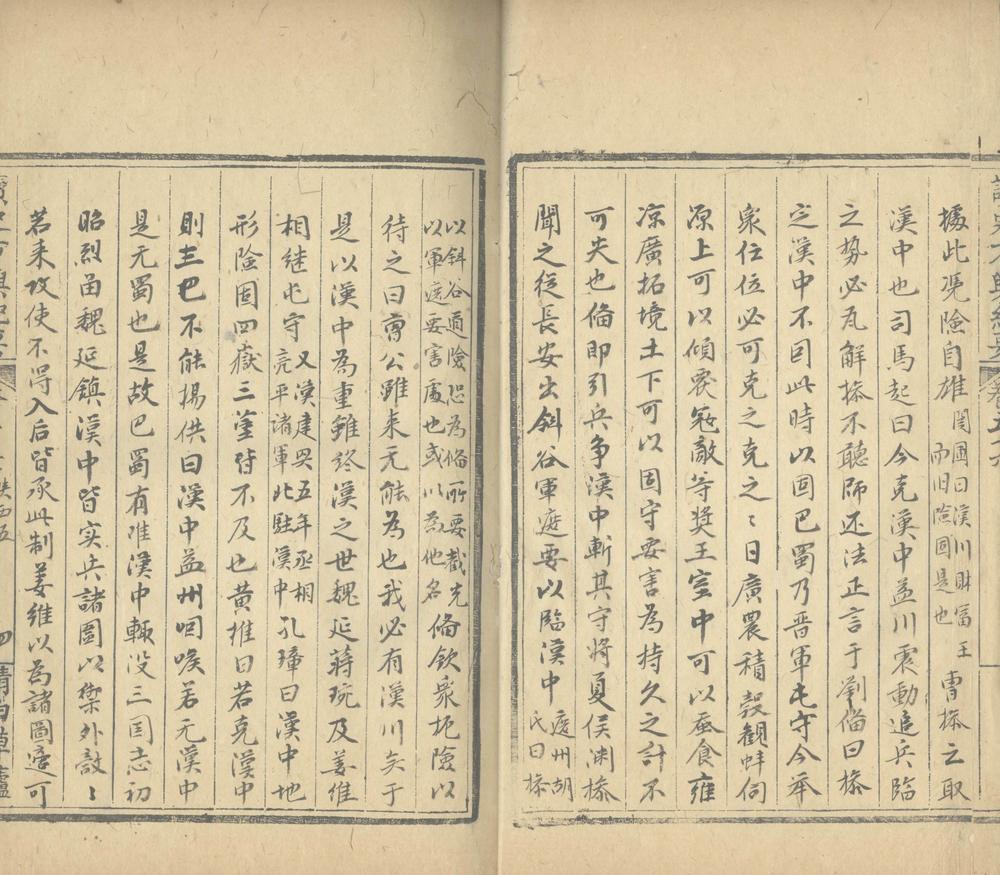 據此凴險自雄
閻圃曰漢川財富王
而旧險固是也
曹操之取
漢中也司馬起曰今克漢中益川震動追兵臨
之势必瓦解操不聽師还法正言于劉俻曰操
㝎漢中不因此時以图巴蜀乃晋軍屯守今举
衆仕位必可克之克之〻日廣農積榖觀衅伺
上可以傾震敵等奨王室中可以蚕食雍
凉廣拓境土下可以固守要害為持久之計不
可失也俻即引兵争漢中斬其守将夏侯渊操
聞之從長安出斜谷軍遮要以臨漢中
遮州胡
氏曰操
以斜谷道險恐为俻所要截先
以軍遮要害處也或以為他名
俻飲衆扼險以
待之曰曹公雖来无能為也我必有漢川矣于
是以漢中為重雖終漢之世魏延蒋琬及姜维
相继屯守
又漢建興五年丞相
亮平諸軍北駐漢中
孔璋曰漢中地
形險固四嶽三皆不及也黄推曰若克漢中
則三巴不能揚供曰漢中益州咽喉若无漢中
是无蜀也是故巴蜀有难漢中輒没三国志初
昭烈畄魏延鎮漢中皆实兵諸圍以禦外敵〻
若来攻使不得入后皆承此制姜维以為諸圖適可